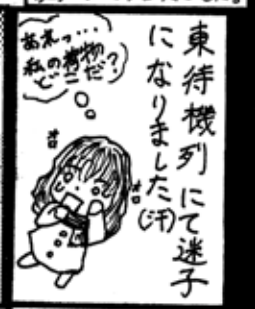 東待機列にて迷子
になりました(汗)
あれっ…
私の荷物
どこだ?
オロ
オロ